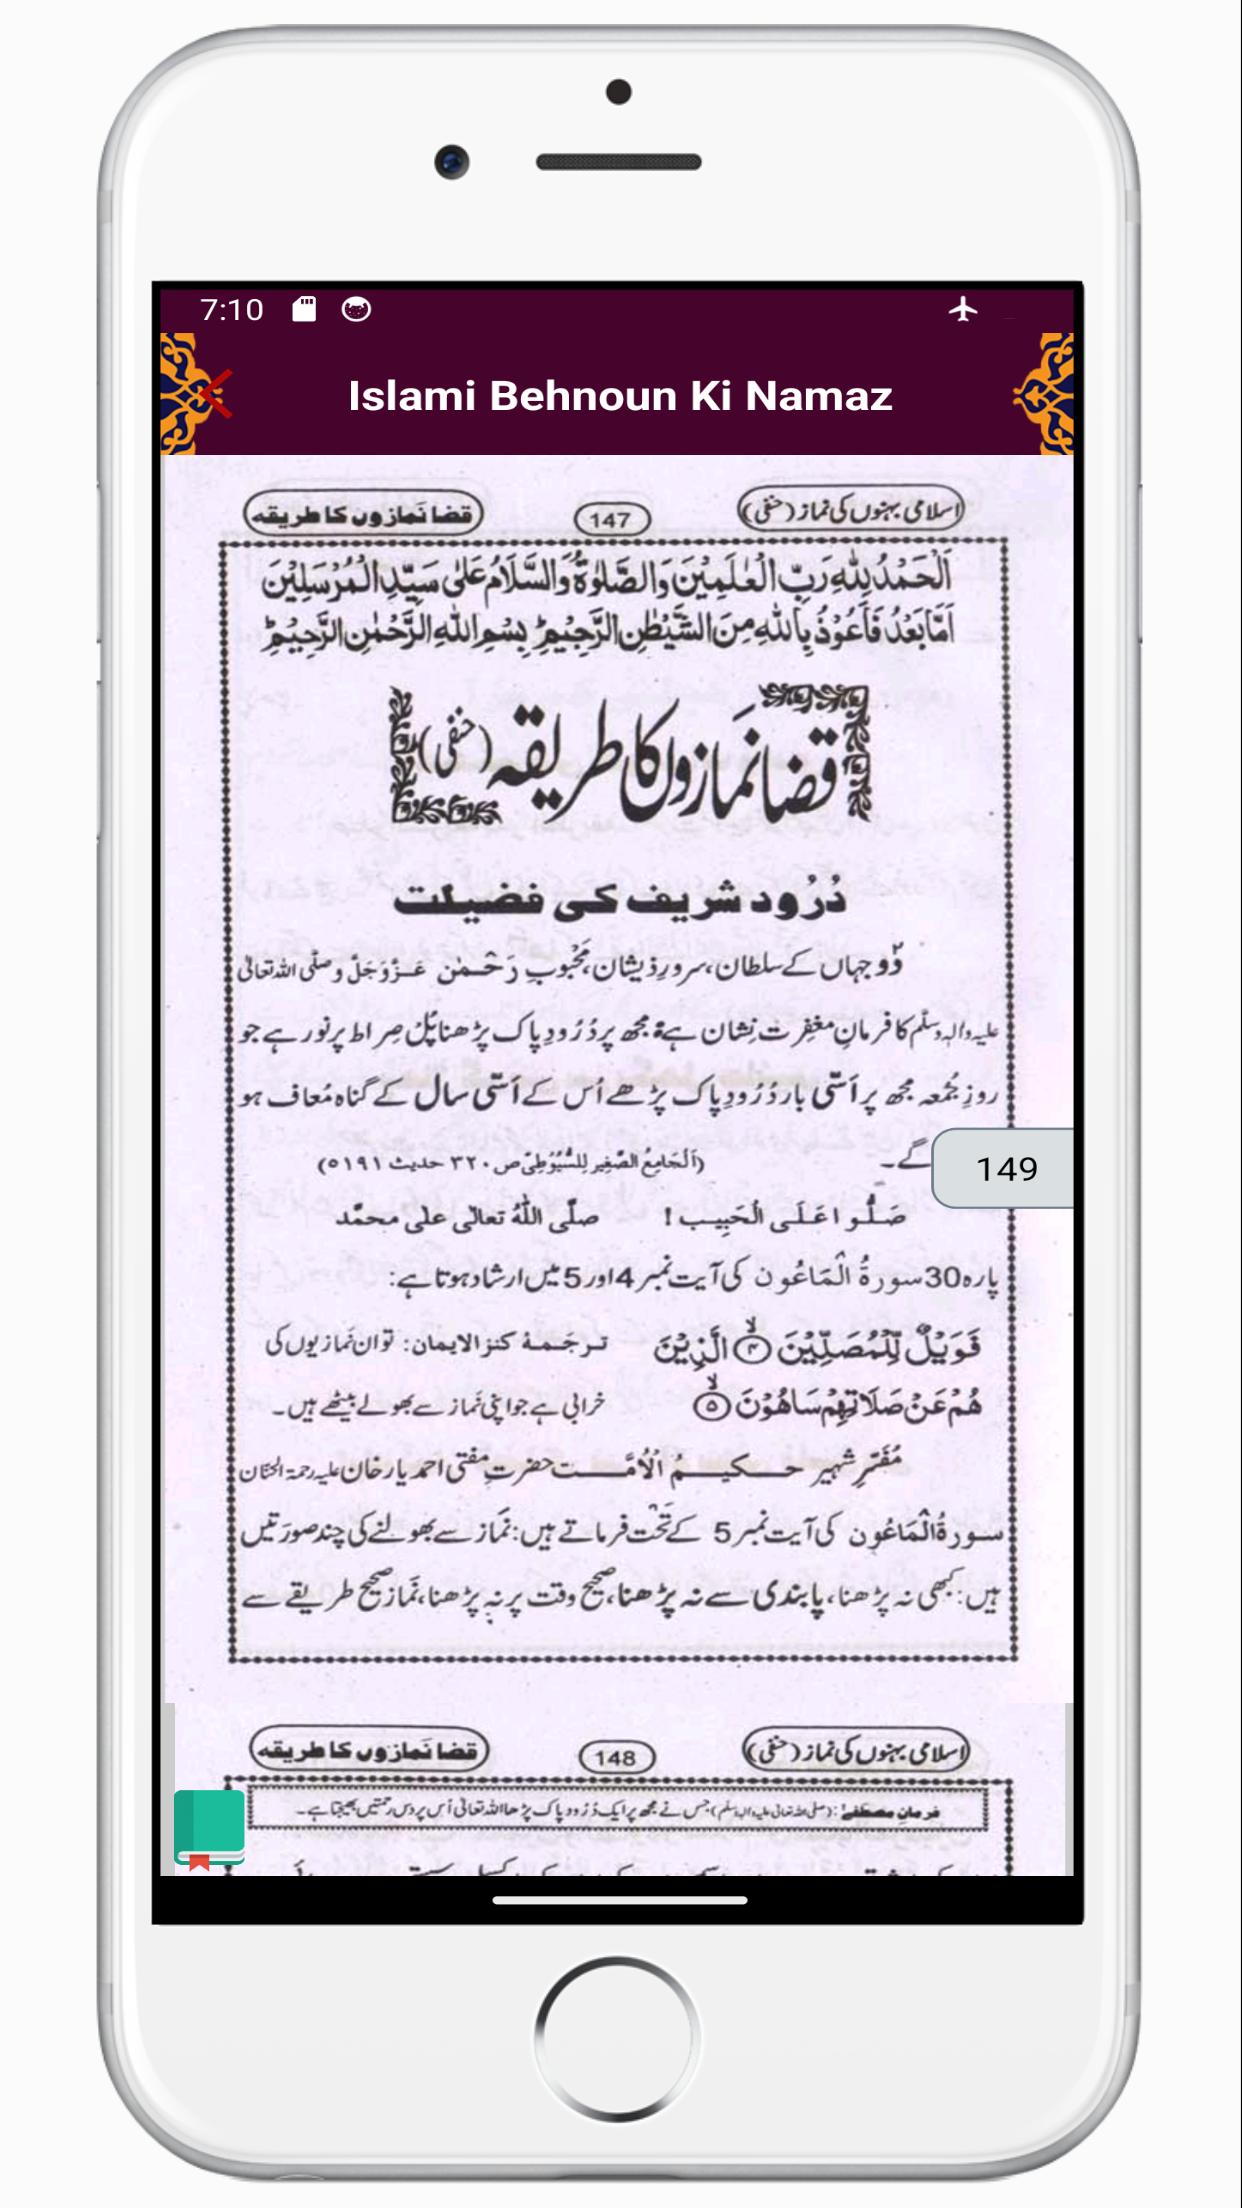 7:10
Islami Behnoun Ki Namaz
اسلامی بہنوں کی نماز (حنفی) 147 قضا نَمازوں کا طریقہ
اَلْحَمْدُ لِلّٰهِ رَبِّ الْعٰلَمِیْنَ وَالصَّلٰوةُ وَالسَّلَامُ عَلٰی سَیِّدِ الْمُرْسَلِیْنَ
اَمَّا بَعْدُ فَاَعُوْذُ بِاللّٰهِ مِنَ الشَّیْطٰنِ الرَّجِیْمِ بِسْمِ اللّٰهِ الرَّحْمٰنِ الرَّحِیْمِ
قضا نَمازوں کا طریقہ (حنفی)
دُرُود شریف کی فضیلت
دُو جہاں کے سلطان، سرورِ ذیشان، مَحْبُوبِ رَحْمٰن عَزَّوَجَلَّ وصلَّی اللہ تعالٰی
علیہ والہٖ وسلَّم کا فرمانِ مغفِرت نِشان ہے: مجھ پر دُرُودِ پاک پڑھنا پُلْ صِراط پر نور ہے جو
روزِ جُمُعہ مجھ پر اَسّی بار دُرُودِ پاک پڑھے اُس کے اَسّی سال کے گناہ مُعاف ہو
گے۔ (اَلْجامِعُ الصَّغِیر لِلسُّیُوْطِیّ ص ۳۲۰ حدیث ۵۱۹۱)
149
صَلُّوا عَلَی الْحَبِیب ! صلَّی اللّٰہُ تعالٰی علٰی محمَّد
پارہ 30 سورۃُ الْمَاعُون کی آیت نمبر 4 اور 5 میں ارشاد ہوتا ہے:
فَوَیْلٌ لِّلْمُصَلِّیْنَ ﴿۴﴾ الَّذِیْنَ ترجَمۂ کنز الایمان: تو ان نَمازیوں کی
هُمْ عَنْ صَلَاتِهِمْ سَاهُوْنَ ﴿۵﴾ خرابی ہے جو اپنی نَماز سے بھولے بیٹھے ہیں۔
مُفَسّرِ شہیر حکیمُ الْاُمَّت حضرتِ مفتی احمد یار خان علیہ رحمۃ الحنّان
سورۃُ الْمَاعُون کی آیت نمبر 5 کے تَحْت فرماتے ہیں: نَماز سے بھولنے کی چند صورَتیں
ہیں: کبھی نہ پڑھنا، پابندی سے نہ پڑھنا، صحیح وقت پر نہ پڑھنا، نَماز صحیح طریقے سے
اسلامی بہنوں کی نماز (حنفی) 148 قضا نَمازوں کا طریقہ
فرمانِ مصطفےٰ: (صلی اللہ تعالیٰ علیہ والہٖ وسلم) جس نے مجھ پر ایک دُرُود پاک پڑھا اللہ تعالیٰ اُس پر دس رحمتیں بھیجتا ہے۔